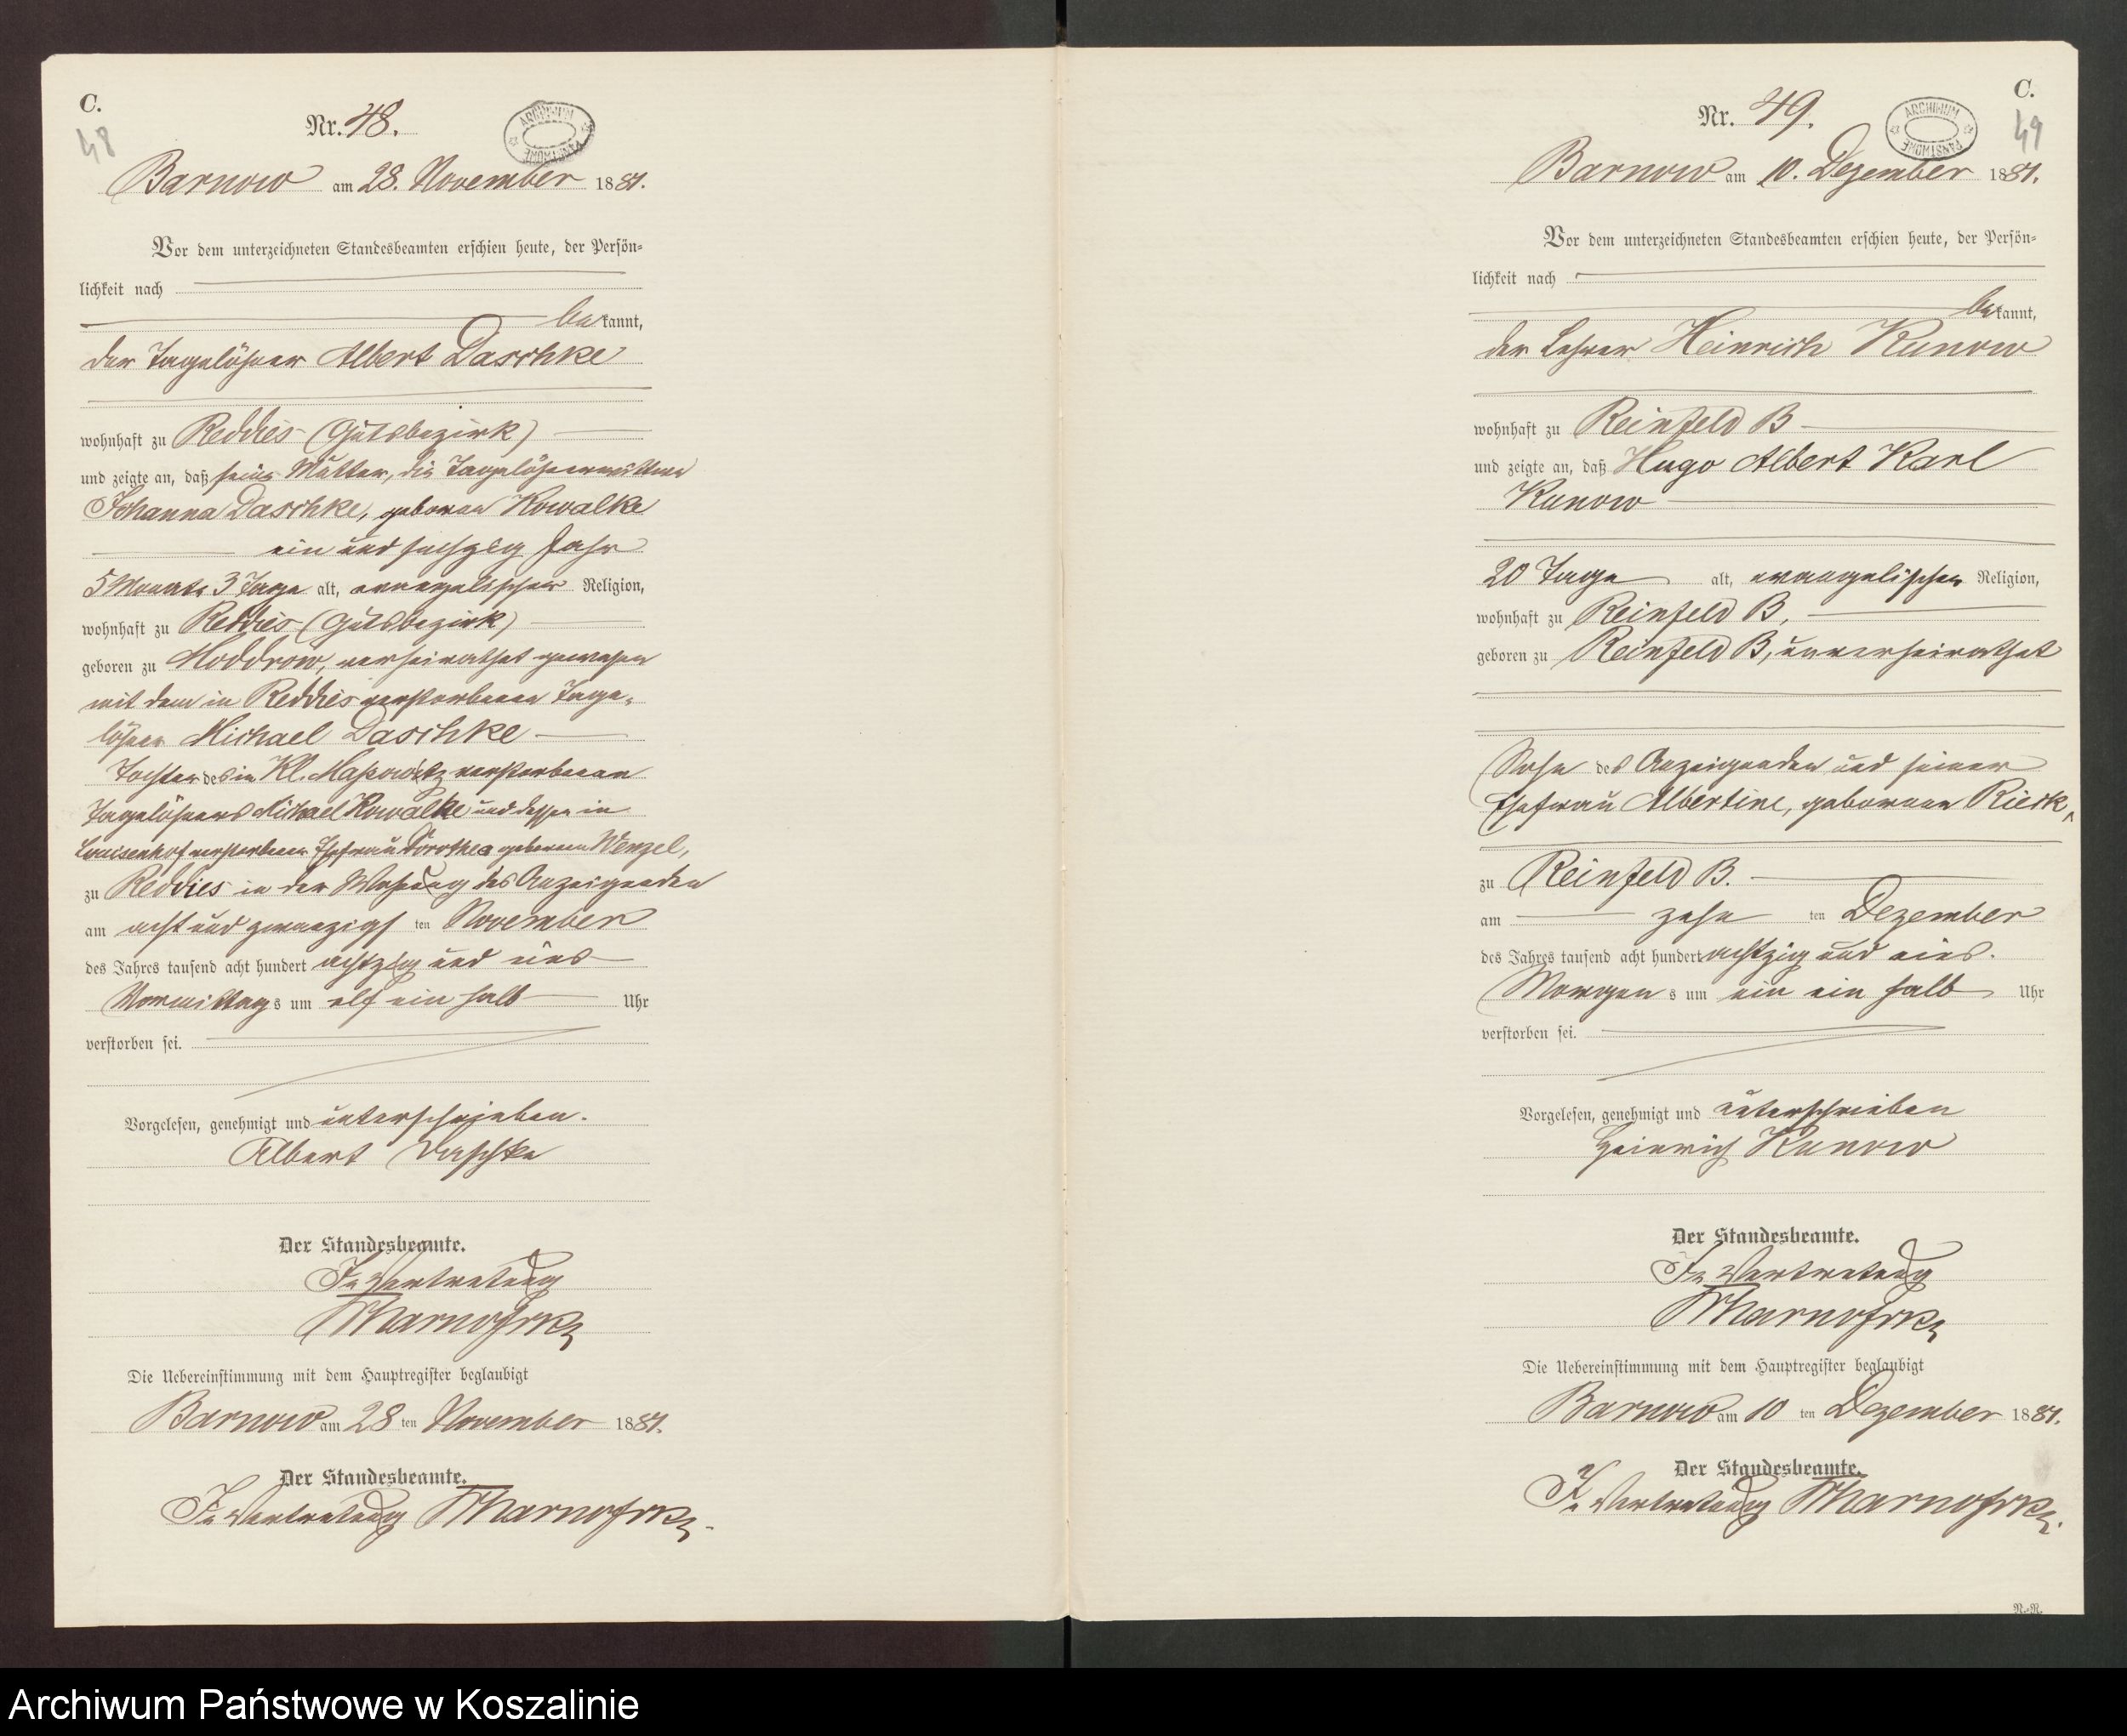 C.
48
Nr. 48.
ARCHIWUM PAŃSTWOWE
Barnow am 28. November 1881.
Vor dem unterzeichneten Standesbeamten erschien heute, der Persön=
lichkeit nach
bekannt,
der Tagelöhner Albert Daschke
wohnhaft zu Reddies (Gutsbezirk)
und zeigte an, daß seine Mutter, die Tagelöhnerwittwe
Johanna Daschke, geborene Kowalke
ein und sechzig Jahr
5 Monate 3 Tage alt, evangelischer Religion,
wohnhaft zu Reddies (Gutsbezirk)
geboren zu Moddrow, verheirathet gewesen
mit dem in Reddies verstorbenen Tage=
löhner Michael Daschke
Tochter des in Kl. Massowitz verstorbenen
Tagelöhners Michael Kowalke und dessen in
Louisenhof verstorbenen Ehefrau Dorothea geborenen Wenzel,
zu Reddies in der Wohnung des Anzeigenden
am acht und zwanzigs ten November
des Jahres tausend acht hundert achtzig und eins
Vormittags um elf ein halb Uhr
verstorben sei.
Vorgelesen, genehmigt und unterschrieben.
Albert Daschke
Der Standesbeamte.
In Vertretung
Die Uebereinstimmung mit dem Hauptregister beglaubigt
Barnow am 28 ten November 1881.
Der Standesbeamte.
In Vertretung
C.
49
Nr. 49.
ARCHIWUM PAŃSTWOWE
Barnow am 10. Dezember 1881.
Vor dem unterzeichneten Standesbeamten erschien heute, der Persön=
lichkeit nach
bekannt,
der Lehrer Heinrich Kunow
wohnhaft zu Reinfeld B
und zeigte an, daß Hugo Albert Karl
Kunow
20 Tage alt, evangelischer Religion,
wohnhaft zu Reinfeld B,
geboren zu Reinfeld B, unverheirathet
Sohn des Anzeigenden und seiner
Ehefrau Albertine, geborenen Rieck,
zu Reinfeld B.
am zehn ten Dezember
des Jahres tausend acht hundert achtzig und eins.
Morgens um ein ein halb Uhr
verstorben sei.
Vorgelesen, genehmigt und unterschrieben
Heinrich Kunow
Der Standesbeamte.
In Vertretung
Die Uebereinstimmung mit dem Hauptregister beglaubigt
Barnow am 10 ten Dezember 1881.
Der Standesbeamte.
In Vertretung
N.-R.
Archiwum Państwowe w Koszalinie